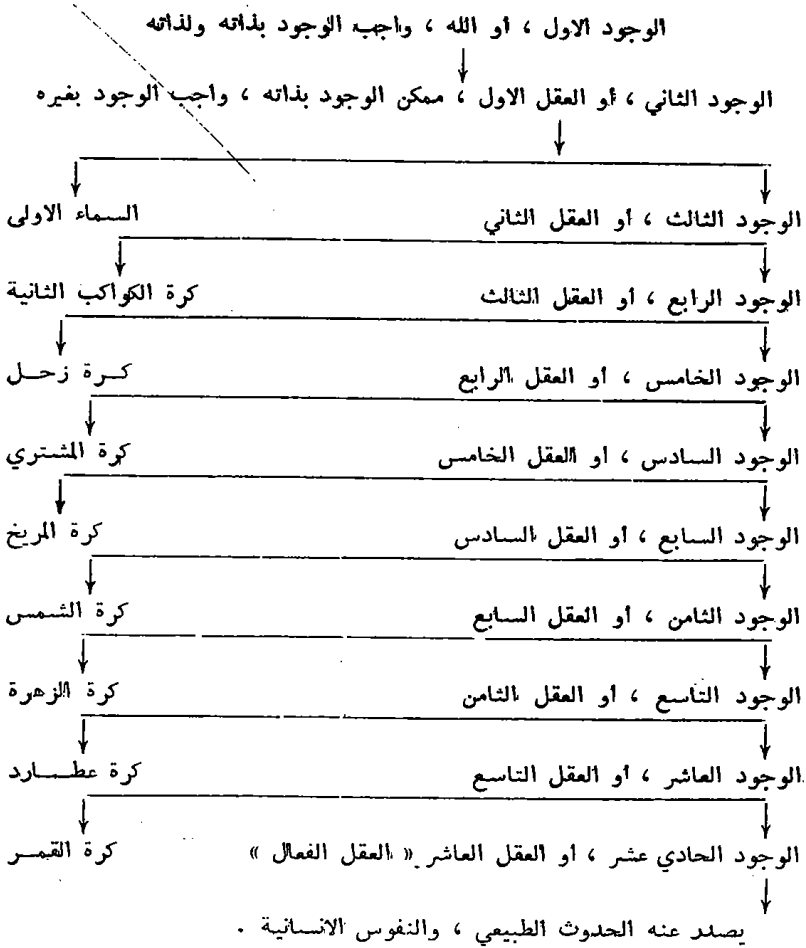 الوجود الاول ، أو الله ، واجب الوجود بذاته ولذاته
الوجود الثاني ، أو العقل الاول ، ممكن الوجود بذاته ، واجب الوجود بغيره
الوجود الثالث ، أو العقل الثاني السماء الاولى
الوجود الرابع ، أو العقل الثالث كرة الكواكب الثانية
الوجود الخامس ، أو العقل الرابع كـرة زحـل
الوجود السادس ، أو العقل الخامس كرة المشتري
الوجود السابع ، أو العقل السادس كرة المريخ
الوجود الثامن ، أو العقل السابع كرة الشمس
الوجود التاسع ، أو العقل الثامن كرة الزهرة
الوجود العاشر ، أو العقل التاسع كرة عطـارد
الوجود الحادي عشر ، أو العقل العاشر « العقل الفعال » كرة القمـر
يصدر عنه الحدوث الطبيعي ، والنفوس الانسانية .